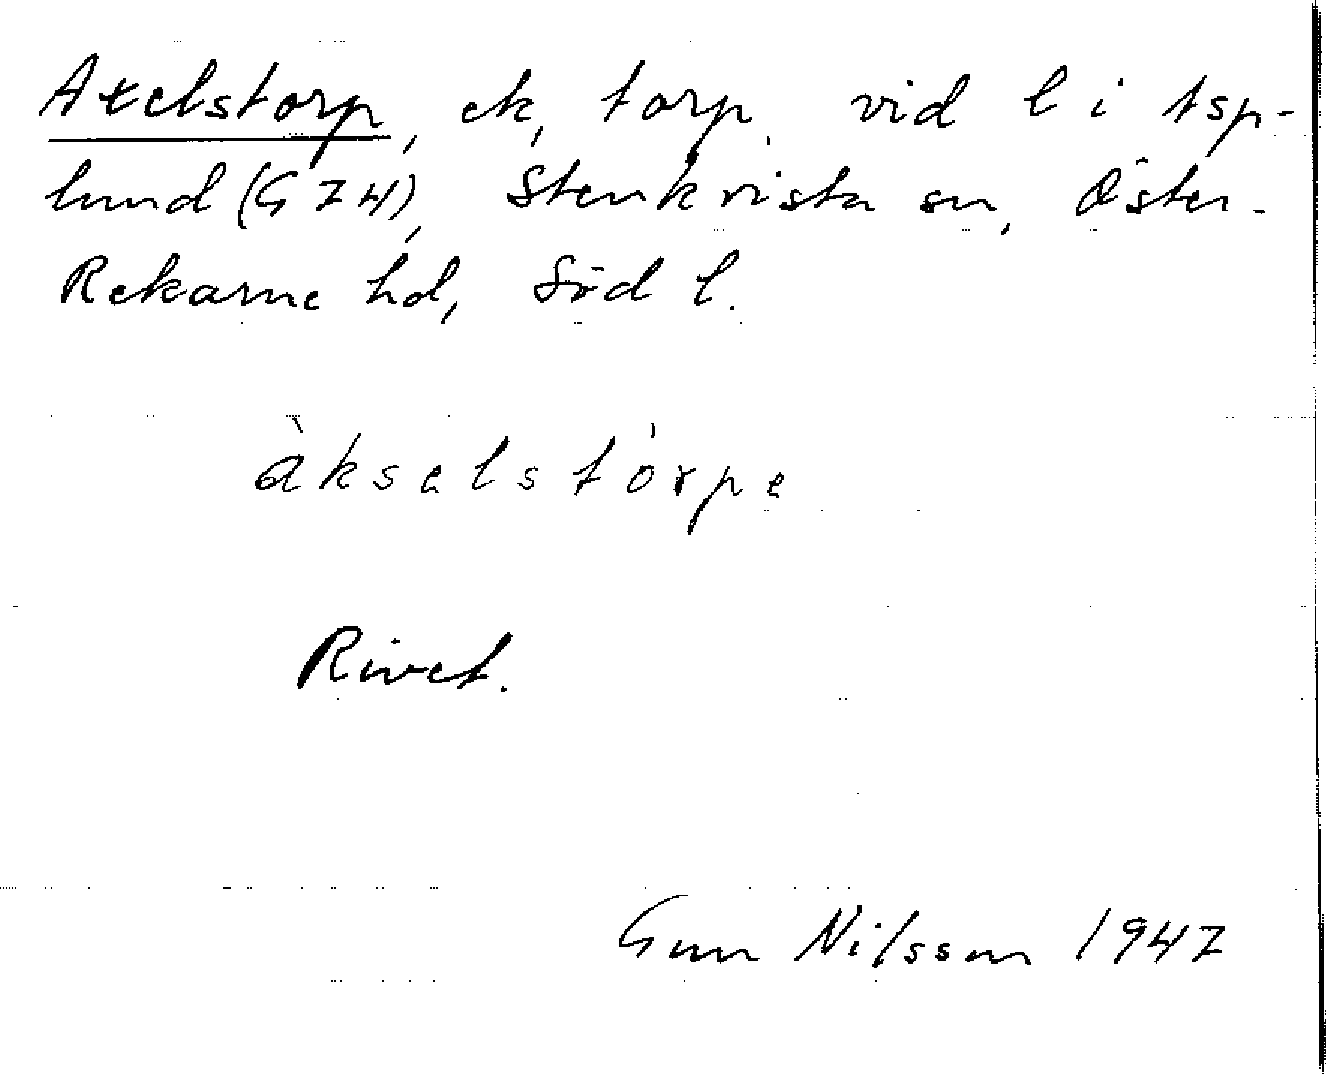 Axelstorp, ek, torp, vid l i Asp-
lund (G 74), Stenkvista sn, Öster-
Rekarne hd, Söd l.
àkselstòrpe
Rivet.
Gun Nilsson 1947